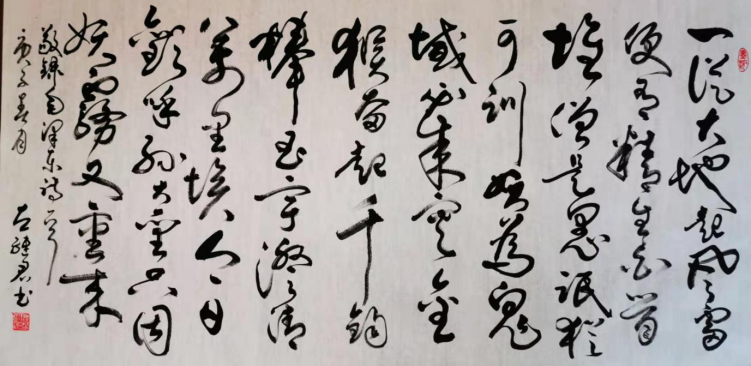 一從大地起风雷
便有精生白骨
堆僧是愚氓犹
可訓妖為鬼
蜮必成灾金
猴奋起千鈞
棒玉宇澄清
萬里埃今日
歡呼孙大聖只因
妖雾又重来
敬錄毛澤東詩一首
庚子春月
书